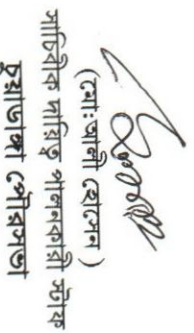 (মোঃআলী হোসেন)
সাচিবীক দায়িত্ব পালনকারী স্টাফ
চুয়াডাঙ্গা পৌরসভা